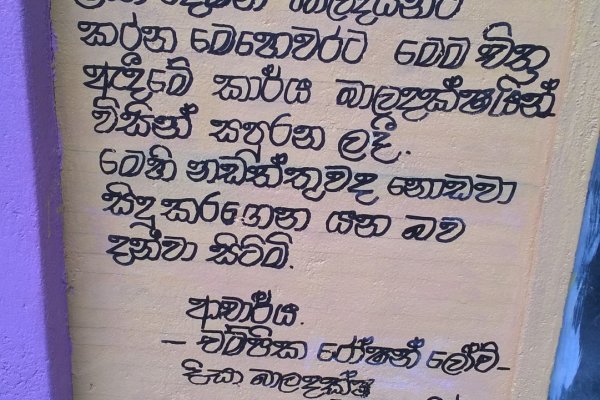 කරන මෙහෙවරට මෙම චිත්‍ර
ඇඳීමේ කාර්ය බාලදක්ෂයින්
විසින් සපුරන ලදී.
මෙහි නඩත්තුවද නොඩවා
සිදුකරගෙන යන බව
දන්වා සිටිමි.
ආචාර්ය.
– චම්පික රෝෂන් ලෝව් –
දිසා බාලදක්ෂ